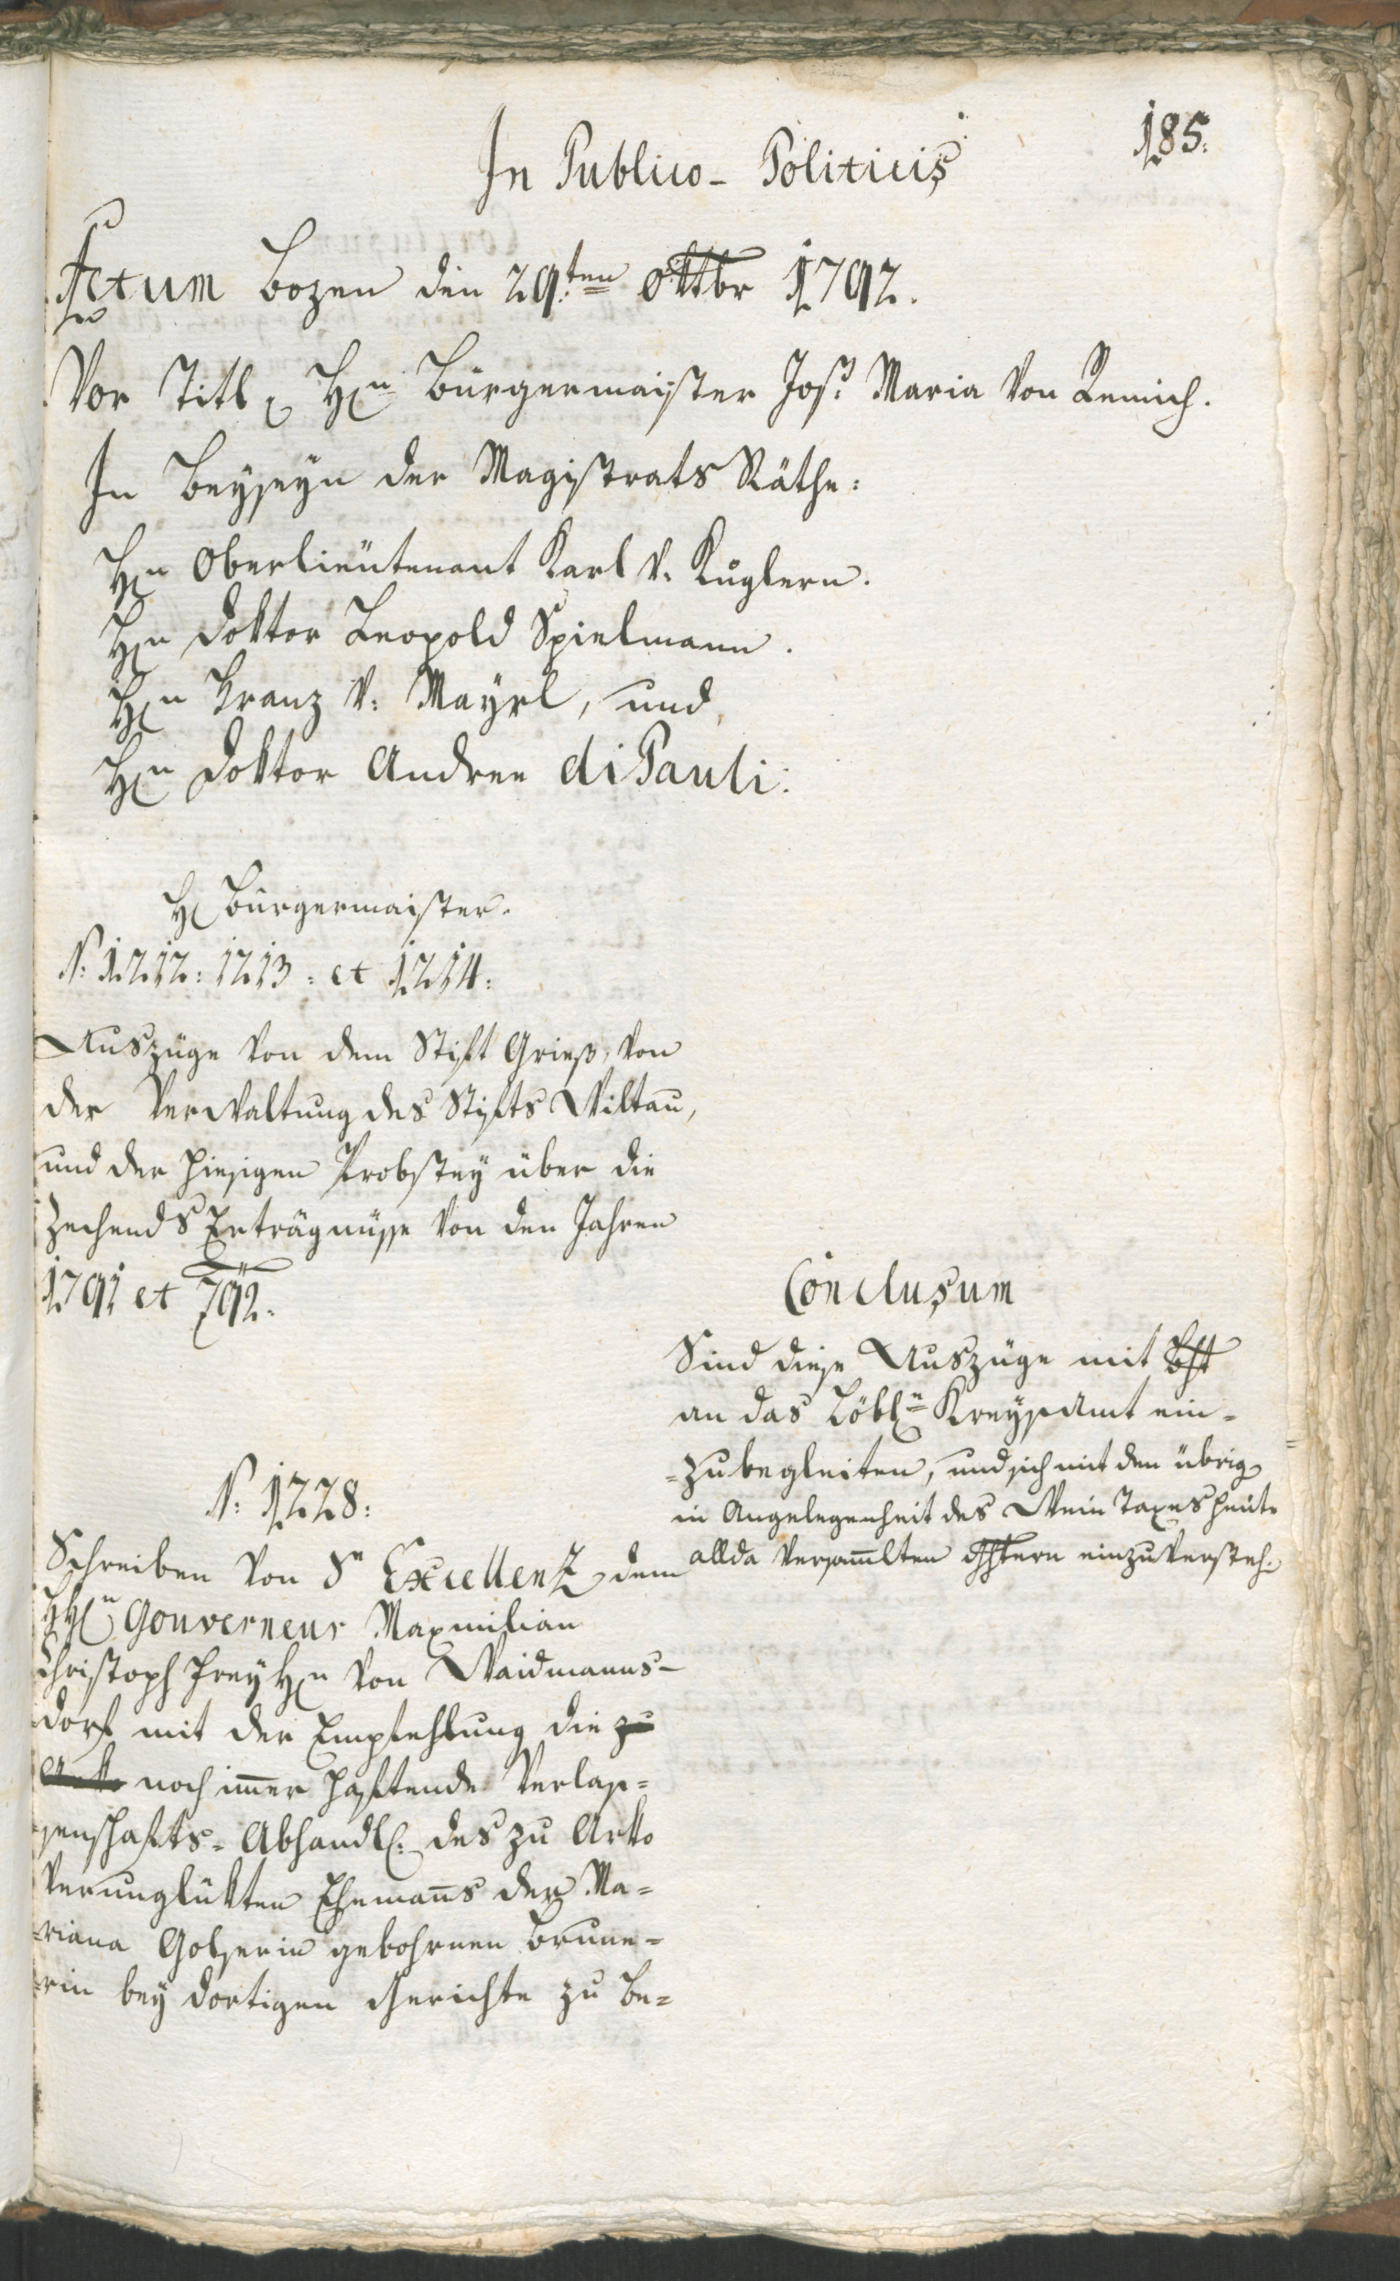 185.
In Publico-Politicis
Actum Bozen den 29.ten 8ttbr 1792.
Vor Titl. Hn Bürgermaister Jos: Maria von Remich.
In Beyseyn der Magistrats Räthe:
Hn Oberlieutenant Karl v. Kuglern.
Hn Doktor Leopold Spielmann.
Hn Franz v: Mayrl, und
Hn Doktor Andree di Pauli:
H Bürgermaister.
N: 1212: 1213: et 1214:
Auszüge von dem Stift Grieß, von
der Verwaltung des Stifts Wiltau,
und der hiesigen Probstey über die
Zechends Erträgnüsse von den Jahren
1791 et 792.
Conclusum
Sind diese Auszüge mit
an das Löbl: Kreysamt ein-
zubegleiten, und sich mit den übrig
in Angelegenheit des Wein Taxes heute
allda versam̅lten einzuversteh.
N: 1228:
Schreiben von Sr Excellenz dem
HHn Gouverneur Maxmilian
Christoph FreyHn von Waidmanns-
dorf mit der Empfehlung die zu
Arko noch im̅er haftende Verlas-
senschafts-Abhandl: des zu Arko
verunglükten Eheman̅s der Ma-
riana Golserin gebohrnen Brune-
rin bey dortigen Gerichte zu be-